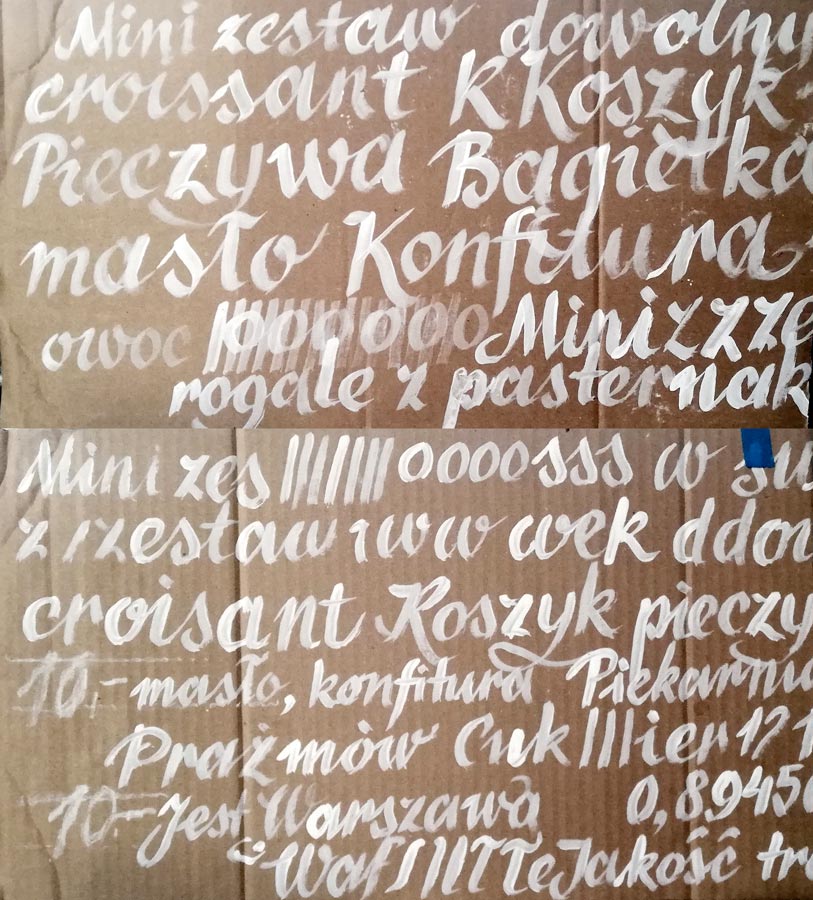 Mini zestaw dowolny
croissant K Koszyk
Pieczywa Bagietka
masło Konfitura
owoc 1000000 Mini z z ze
rogale z pasternak
Mini zes ||||||| oooosss w
z zestaw w w wek ddow
croisant Koszyk pieczy
10.- masło, konfitura Piekarnia
Prażmów Cuk|||ier 17 1
10.- Jest Warszawa 0,89456
Jakość tra